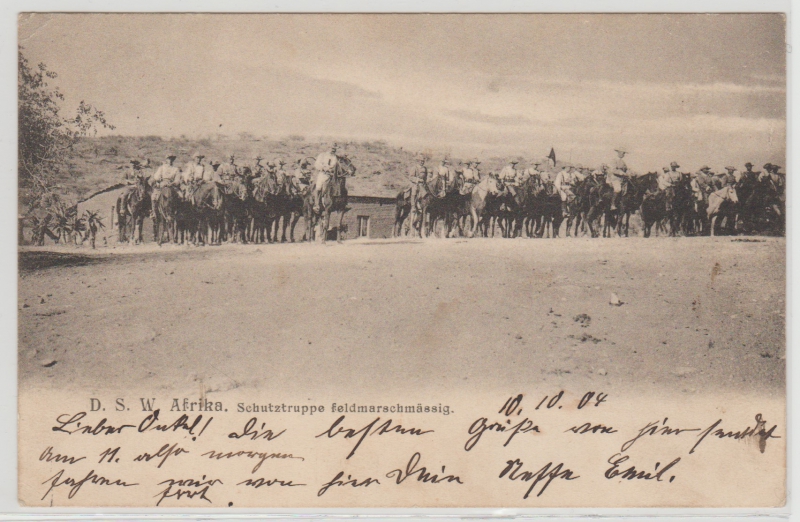 D. S. W. Afrika. Schutztruppe feldmarschmässig.
10. 10. 04
Lieber Onkel! die besten Grüße von hier sendet
Am 11. also morgen
fahren wir von hier Dein Neffe Emil.
fort